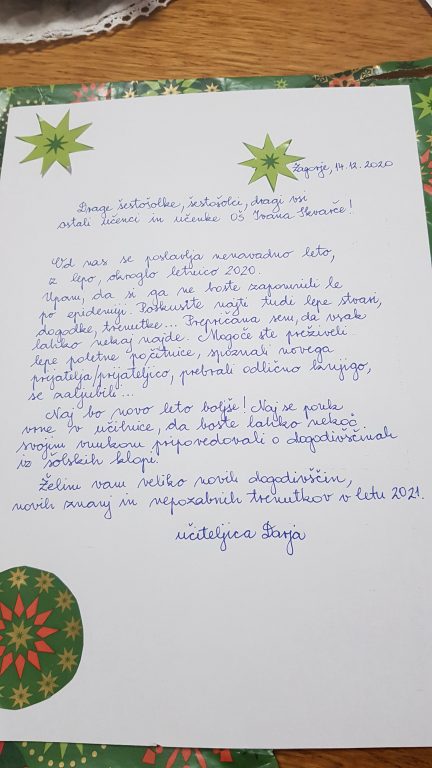 Zagorje, 14.12.2020
Drage šestošolke, šestošolci, dragi vsi
ostali učenci in učenke OŠ Ivana Skvarče!
Od nas se poslavlja nenavadno leto,
z lepo, okroglo letnico 2020.
Upam, da si ga ne boste zapomnili le
po epidemiji. Poskusite najti tudi lepe stvari,
dogodke, trenutke... Prepričana sem, da vsak
lahko nekaj najde. Mogoče ste preživeli
lepe poletne počitnice, spoznali novega
prijatelja/prijateljico, prebrali odlično knjigo,
se zaljubili...
Naj bo novo leto boljše! Naj se pouk
vrne v učilnice, da boste lahko nekoč
svojim vnukom pripovedovali o dogodivščinah
iz šolskih klopi.
Želim vam veliko novih dogodivščin,
novih znanj in nepozabnih trenutkov v letu 2021.
učiteljica Darja